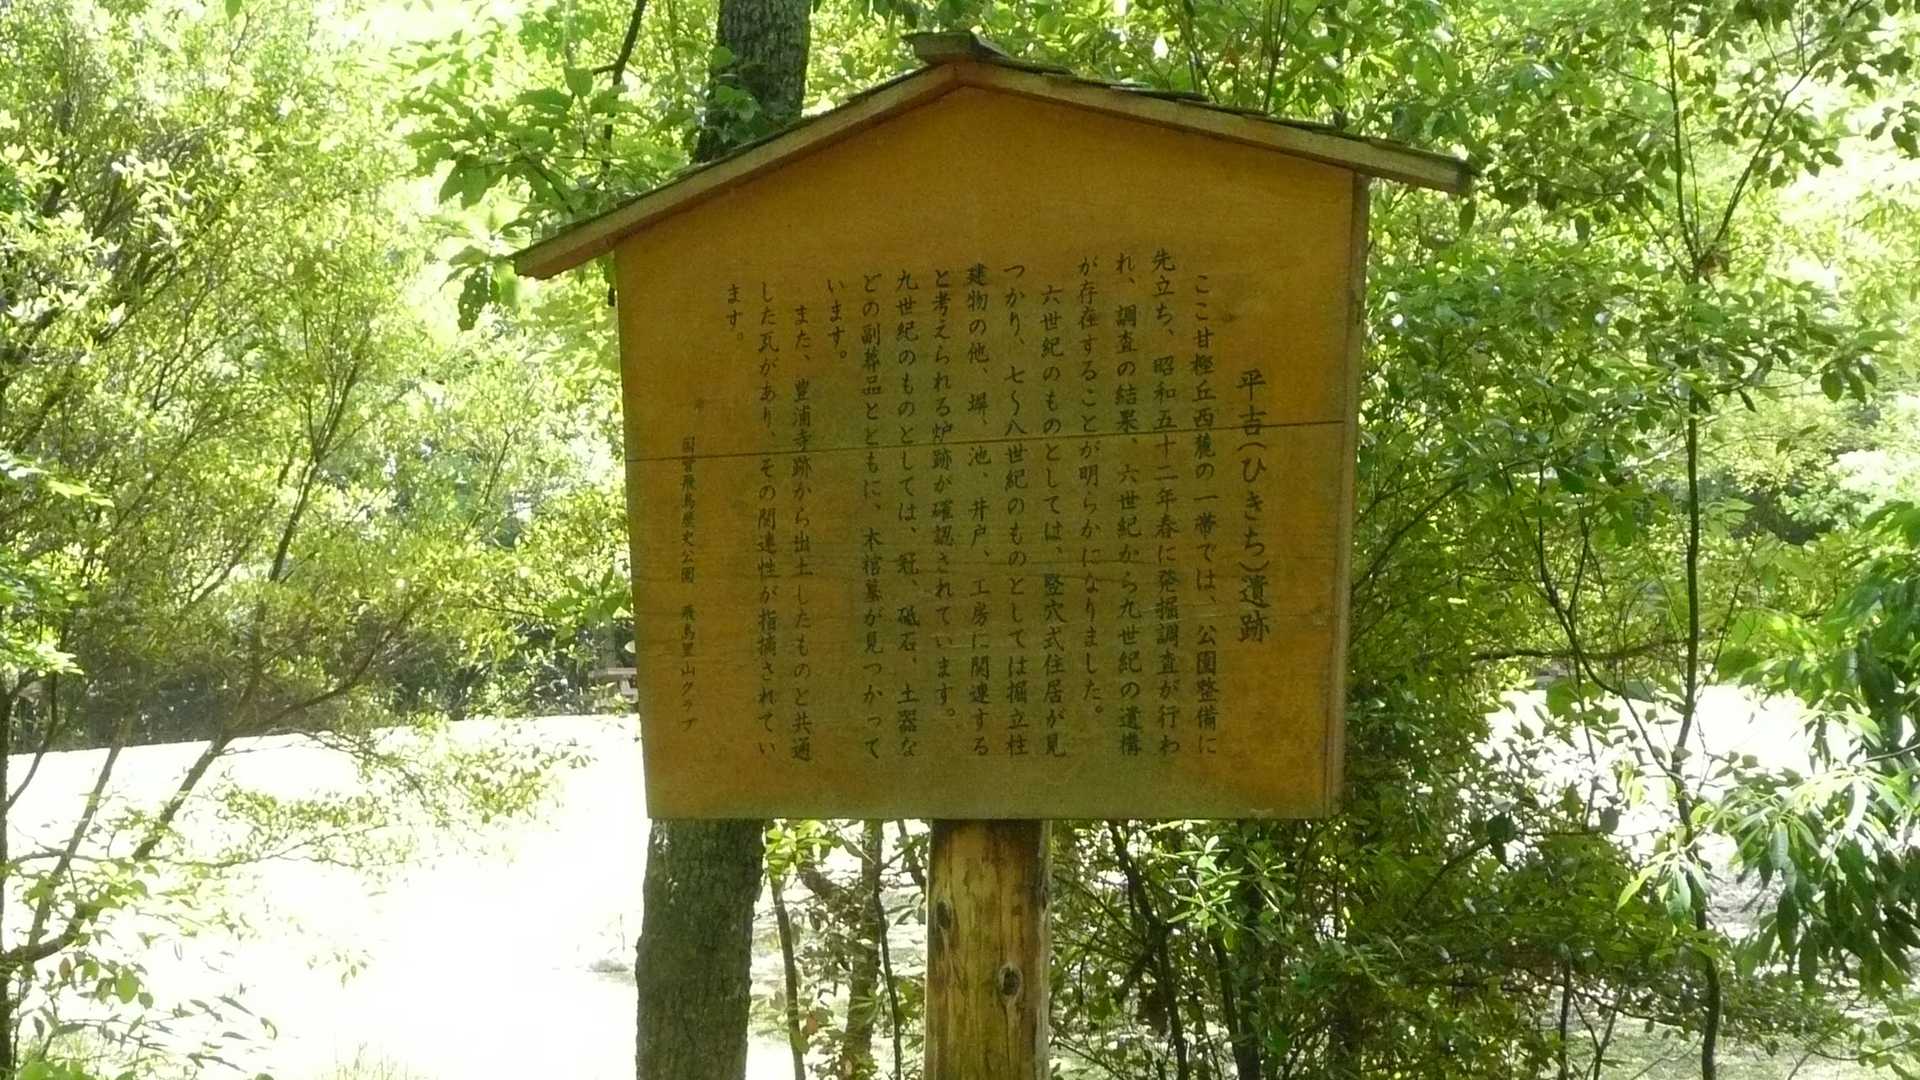 平吉(ひきち)遺跡
ここ甘樫丘西麓の一帯では、公園整備に
先立ち、昭和五十二年春に発掘調査が行わ
れ、調査の結果、六世紀から九世紀の遺構
が存在することが明らかになりました。
六世紀のものとしては、竪穴式住居が見
つかり、七〜八世紀のものとしては掘立柱
建物の他、塀、池、井戸、工房に関連する
と考えられる炉跡が確認されています。
九世紀のものとしては、冠、砥石、土器な
どの副葬品とともに、木棺墓が見つかって
います。
また、豊浦寺跡から出土したものと共通
した瓦があり、その関連性が指摘されてい
ます。
国営飛鳥歴史公園 飛鳥里山クラブ